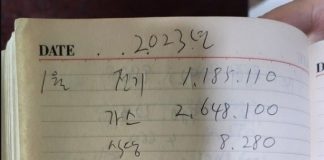 DATE . . 2023년
1월 전기 1.185.110
가스 2.648.100
식당 8.280